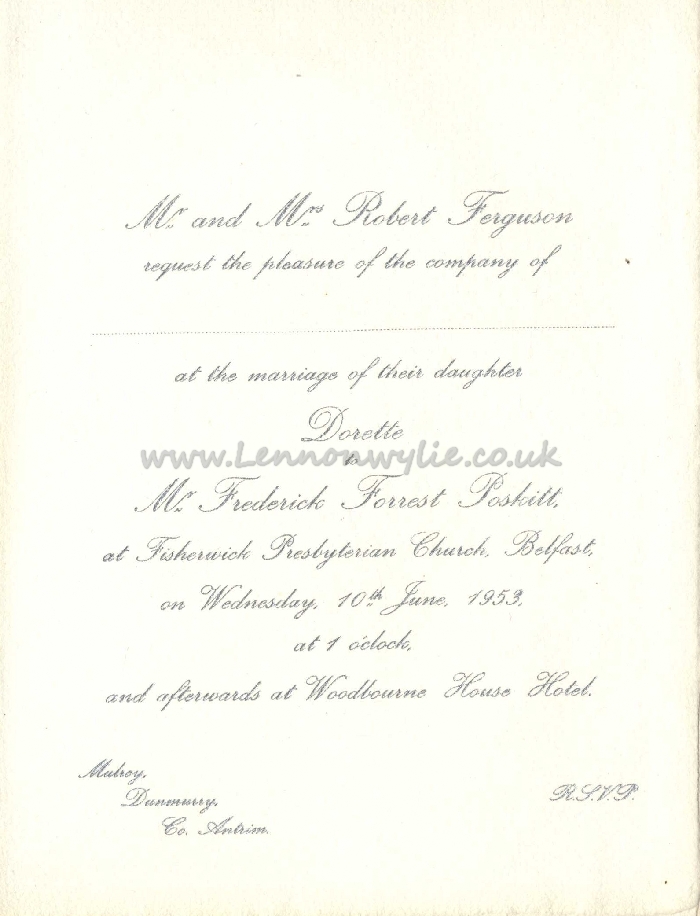 Mr. and Mrs. Robert Ferguson
request the pleasure of the company of
at the marriage of their daughter
Dorette
www.Lennonwylie.co.uk
to
Mr. Frederick Forrest Poskitt,
at Fisherwick Presbyterian Church, Belfast,
on Wednesday, 10th June, 1953,
at 1 o'clock,
and afterwards at Woodbourne House Hotel.
Mulroy,
Dunmurry,
Co. Antrim.
R.S.V.P.